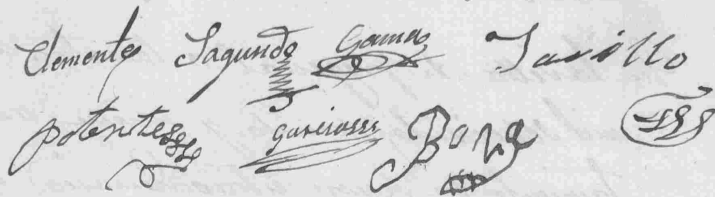 Clemente Sagundo Gama Tarillo
potente Garcia Bone